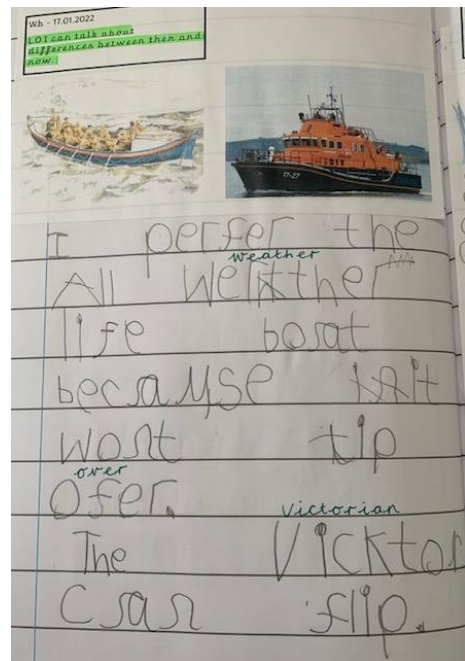 W.b - 17.01.2022
LO I can talk about
differences between then and
now.
17-27
I perfer the
weather
All
life boat
becauyse
wont tip
over
Ofer.
Victorian
The Vicktor
Can flip.